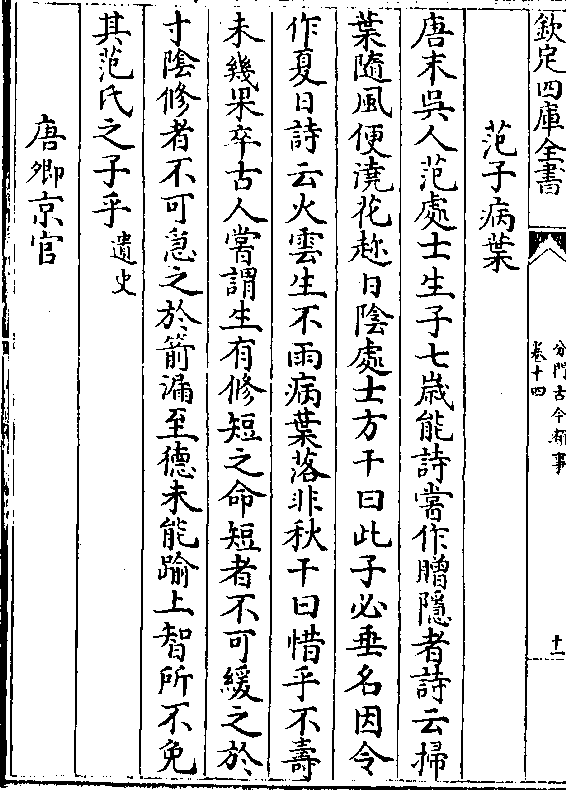 欽定四庫全書
分門古今類事
卷十四
十一
范子病葉
唐末吳人范處士生子七歲能詩嘗作贈隱者詩云掃
葉隨風便澆花趂日陰處士方干曰此子必垂名因令
作夏日詩云火雲生不雨病葉落非秋干曰惜乎不壽
未幾果卒古人嘗謂生有修短之命短者不可緩之於
寸陰修者不可急之於箭漏至德未能踰上智所不免
其范氏之子乎遺史
唐卿京官